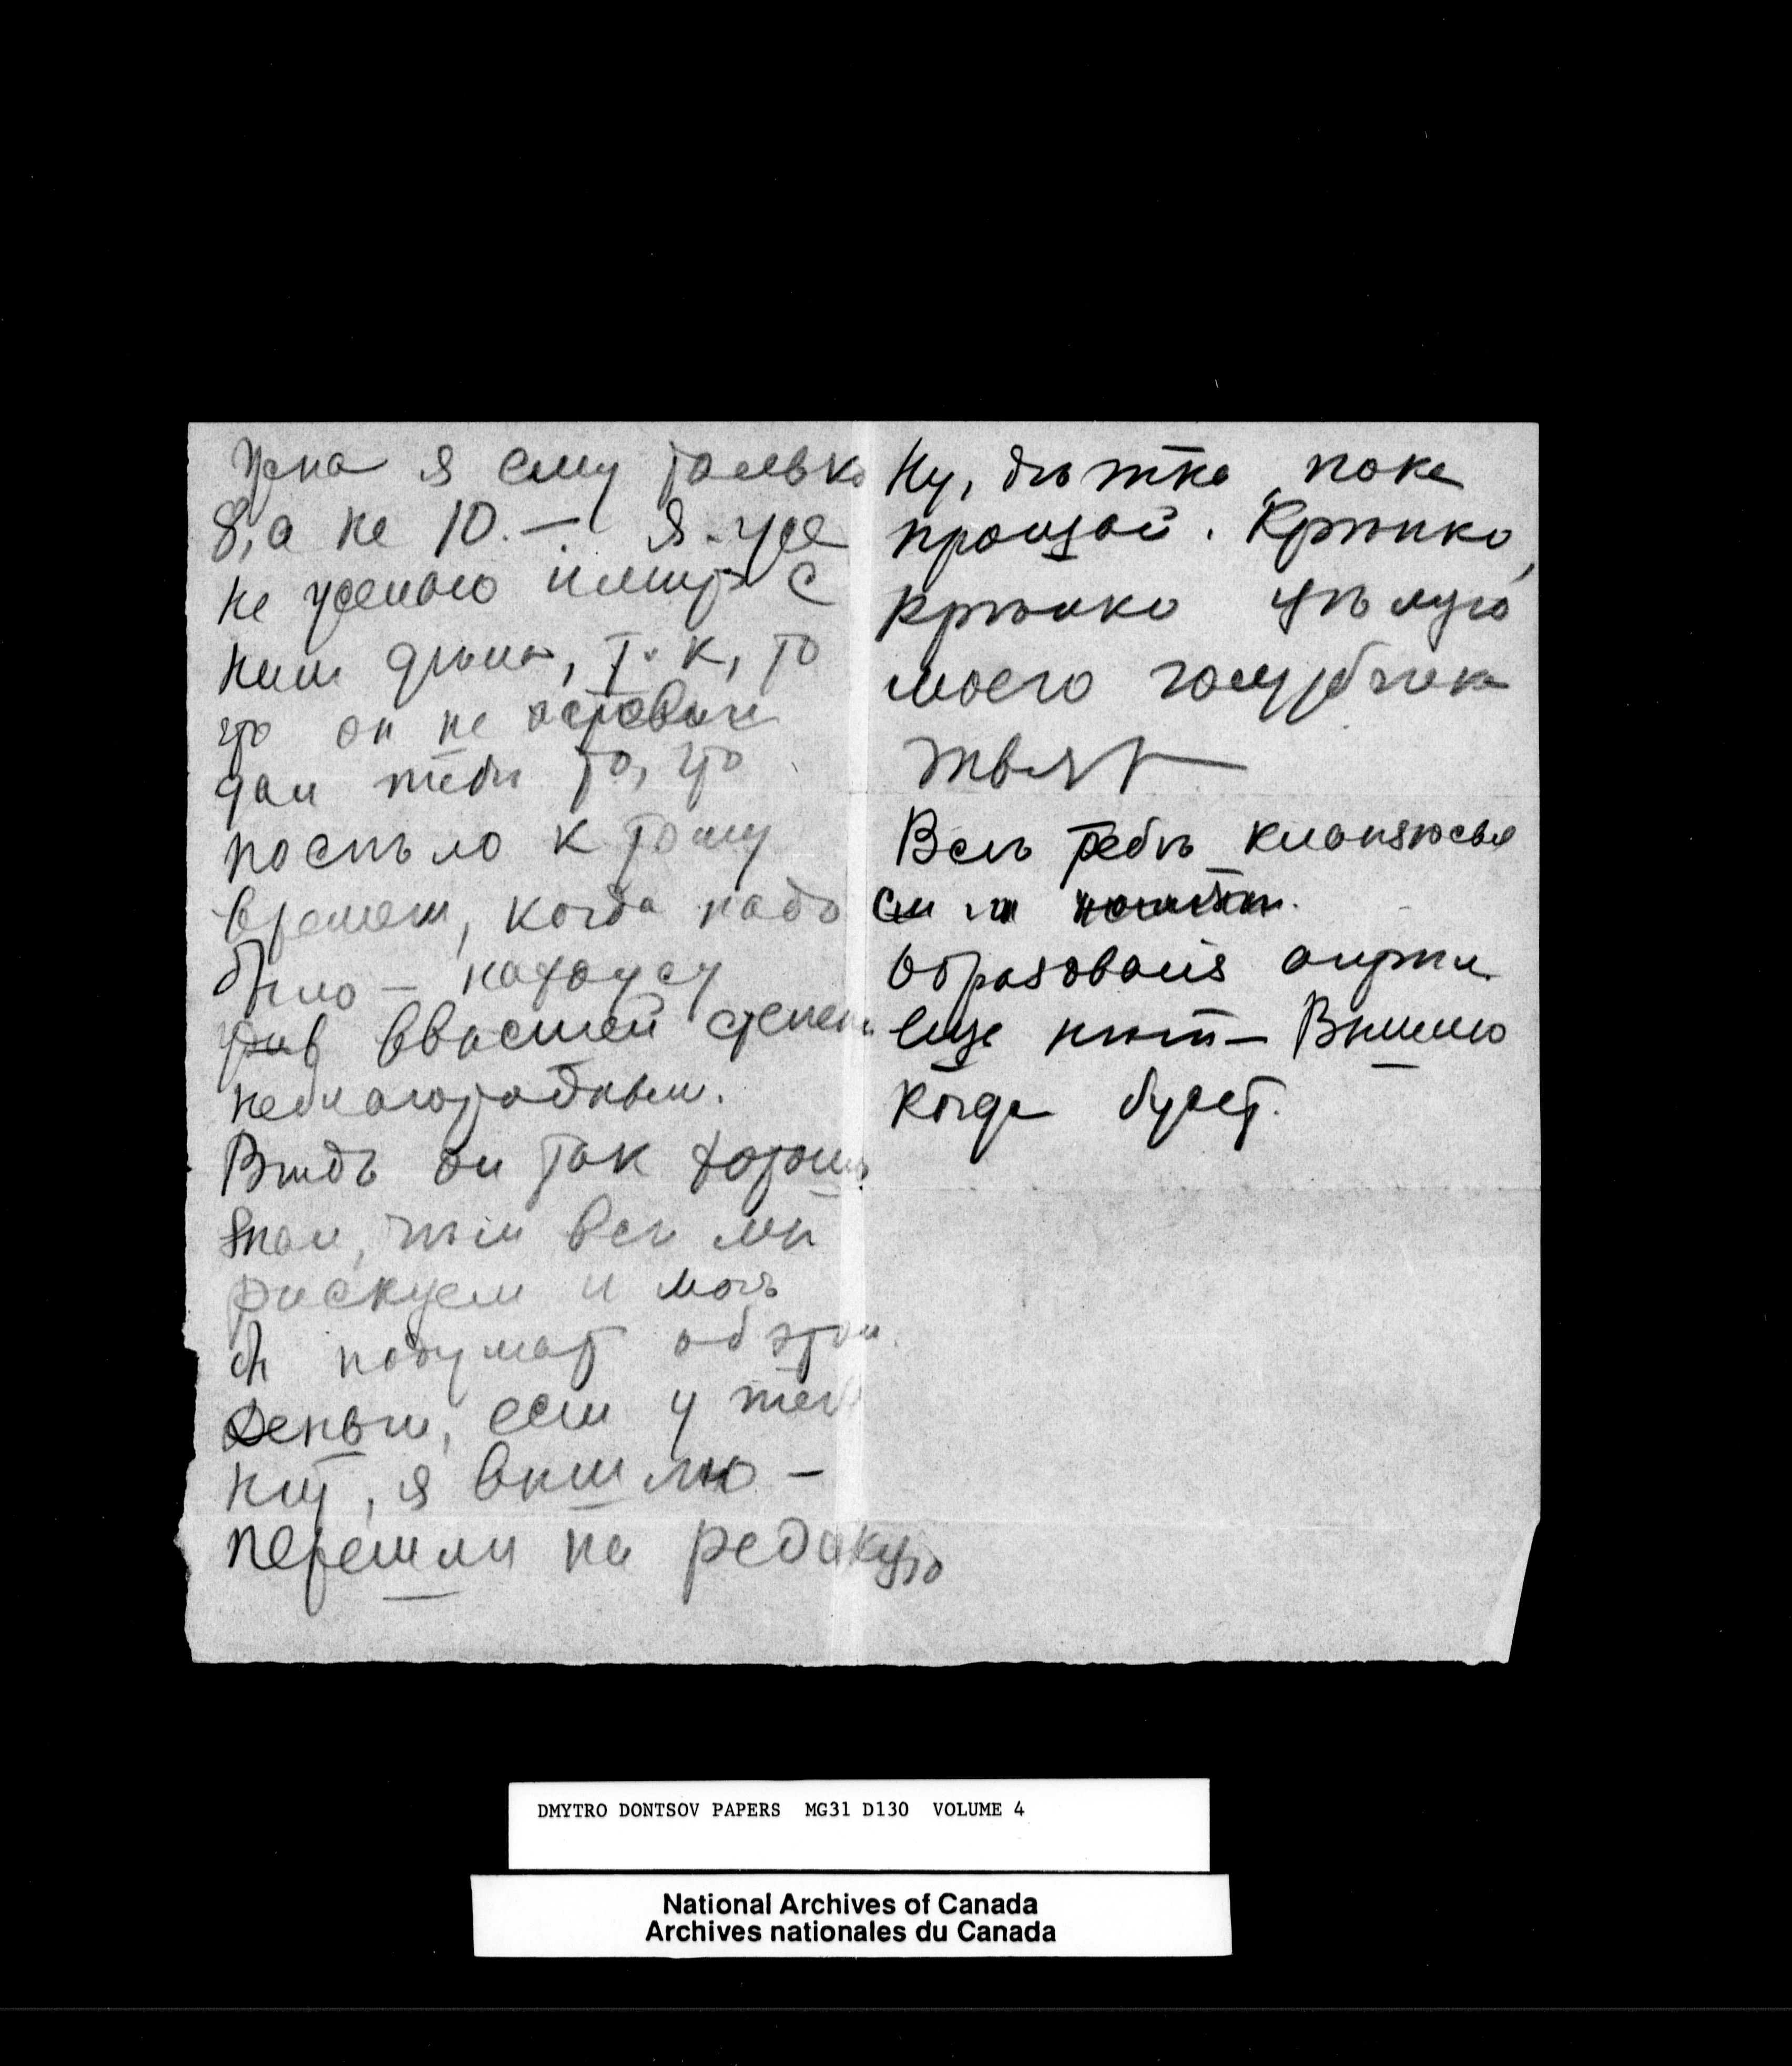 я ему только
8, а не 10. — Я уже
не желаю имѣть с
ним дѣла, т. к, то
что он не оставил
дал тебѣ то, что
поспѣло к тому
времени, когда надо
было — нахожу
неблагородным.
Вѣдь он так хорошо
знал, чѣм всѣ мы
рискуем и мог
бы подумать об этом.
Деньги, если у тебя
нѣт, я вышлю —
перешли на редакцию
Ну, дѣтка, пока
прощай. Крѣпко,
крѣпко цѣлую
моего голубчика
твоя
Всѣ тебѣ кланяются
еще нѣт — Вышлю
когда будет.
DMYTRO DONTSOV PAPERS MG31 D130 VOLUME 4
National Archives of Canada
Archives nationales du Canada